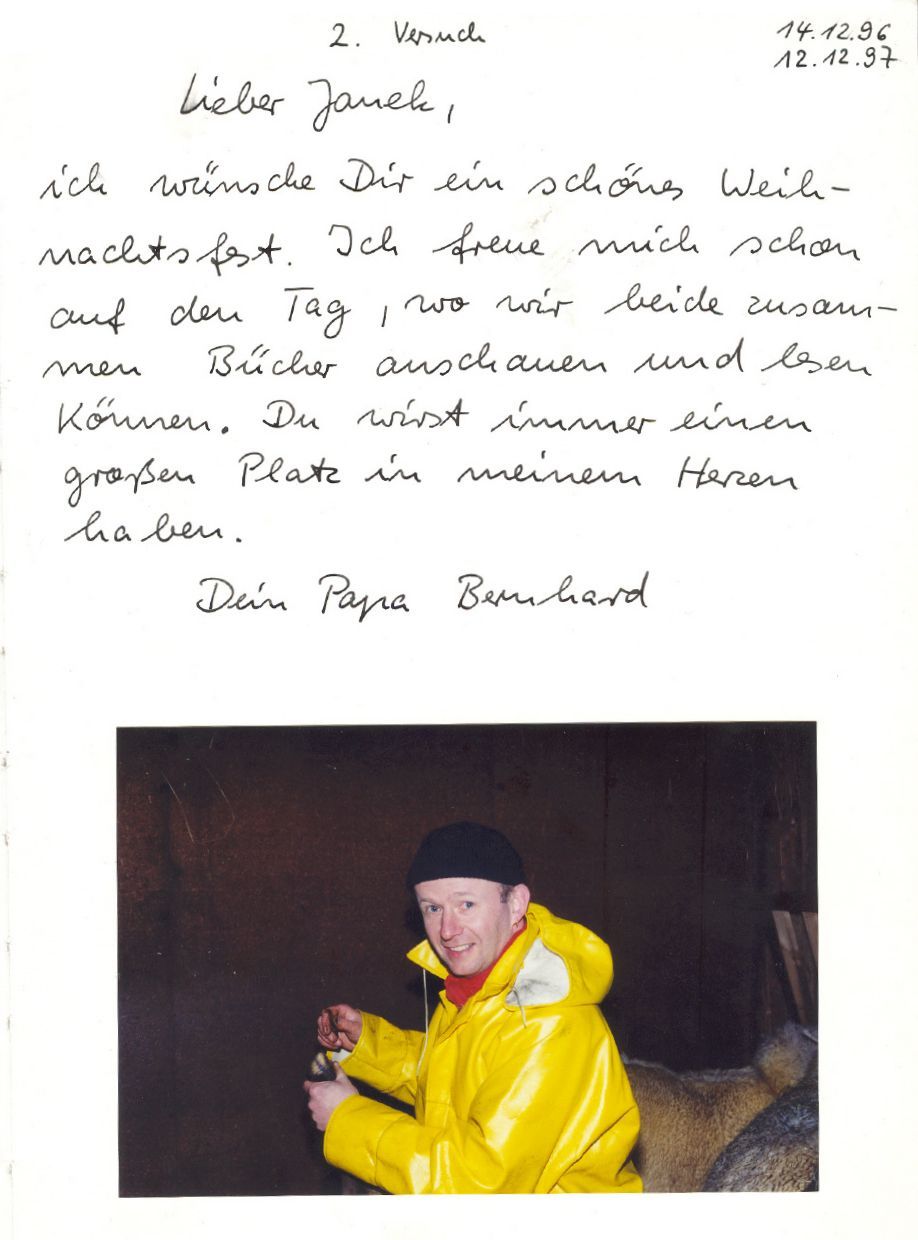 2. Versuch
14.12.96
12.12.97
Lieber Janek,
ich wünsche Dir ein schönes Weih-
nachtsfest. Ich freue mich schon
auf den Tag, wo wir beide zusam-
men Bücher anschauen und lesen
können. Du wirst immer einen
großen Platz in meinem Herzen
haben.
Dein Papa Bernhard